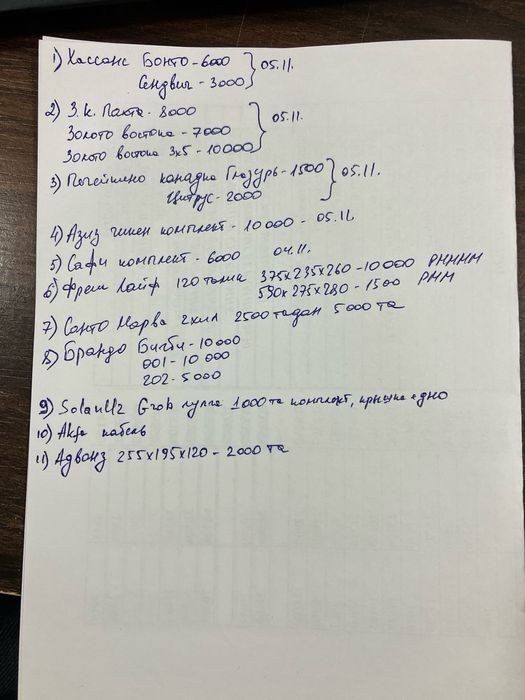 1) Хассанс Бонто - 6000 } 05.11.
Сендвич - 3000
2) З.К. Пахта - 8000
Золото востока - 7000 } 05.11.
Золото востока 3х5 - 10000
3) канадка Глазурь - 1500 } 05.11.
Цитрус - 2000
4) Азиз чикен комплект - 10000 - 05.11.
5) Сафи комплект - 6000 04.11.
6) Фреш Лайф 120 талик 375х235х260 - 10000 РНННМ
590х275х280 - 1500 РНМ
7) Санто Марва 2хил 2500 тадан 5000 та
8) Брандо Бигби - 10000
001 - 10 000
202 - 5000
9) Grob 1000 та комплект, крышка + дно
10) Akfa кабель
11) Адванз 255х195х120 - 2000 та